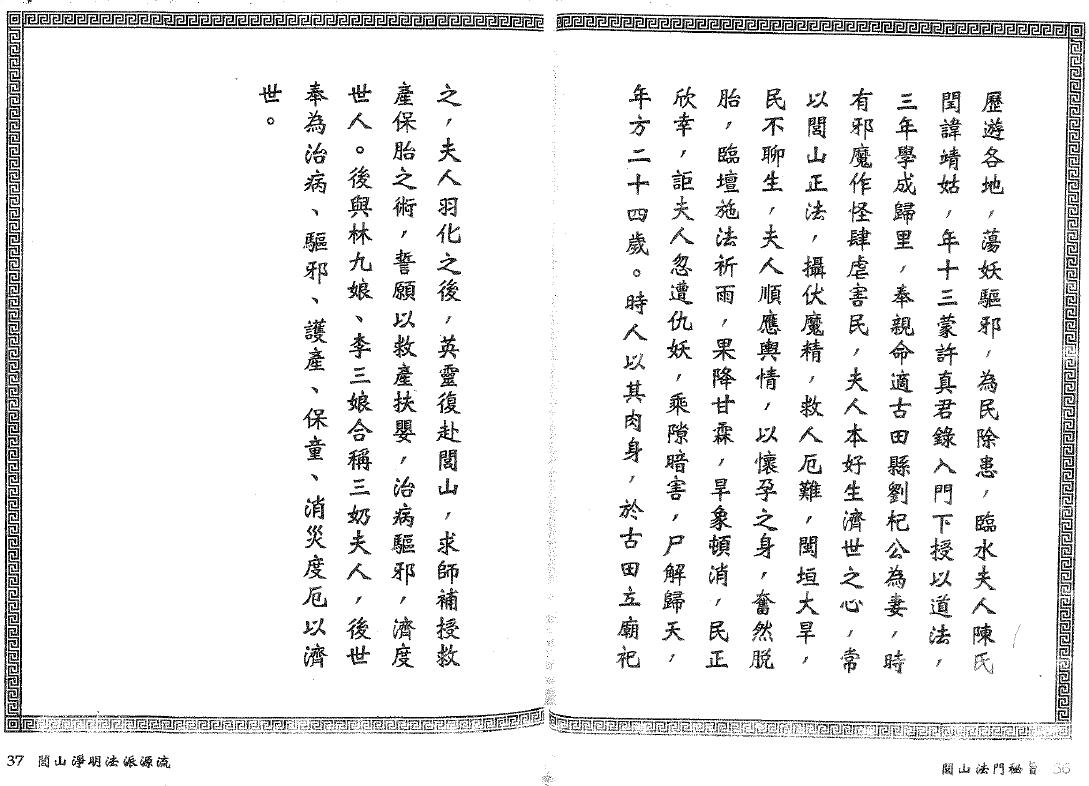 歷遊各地，蕩妖驅邪，為民除患，臨水夫人陳氏
閏諱靖姑，年十三蒙許真君錄入門下授以道法，
三年學成歸里，奉親命適古田縣劉杞公為妻，時
有邪魔作怪肆虐害民，夫人本好生濟世之心，常
以閭山正法，攝伏魔精，救人厄難，閩垣大旱，
民不聊生，夫人順應輿情，以懷孕之身，奮然脫
胎，臨壇施法祈雨，果降甘霖，旱象頓消，民正
欣幸，詎夫人忽遭仇妖，乘隙暗害，尸解歸天，
年方二十四歲。時人以其肉身，於古田立廟祀
閭山法門秘旨 36
之，夫人羽化之後，英靈復赴閭山，求師補授救
產保胎之術，誓願以救產扶嬰，治病驅邪，濟度
世人。後與林九娘、李三娘合稱三奶夫人，後世
奉為治病、驅邪、護產、保童、消災度厄以濟
世。
37 閭山淨明法派源流